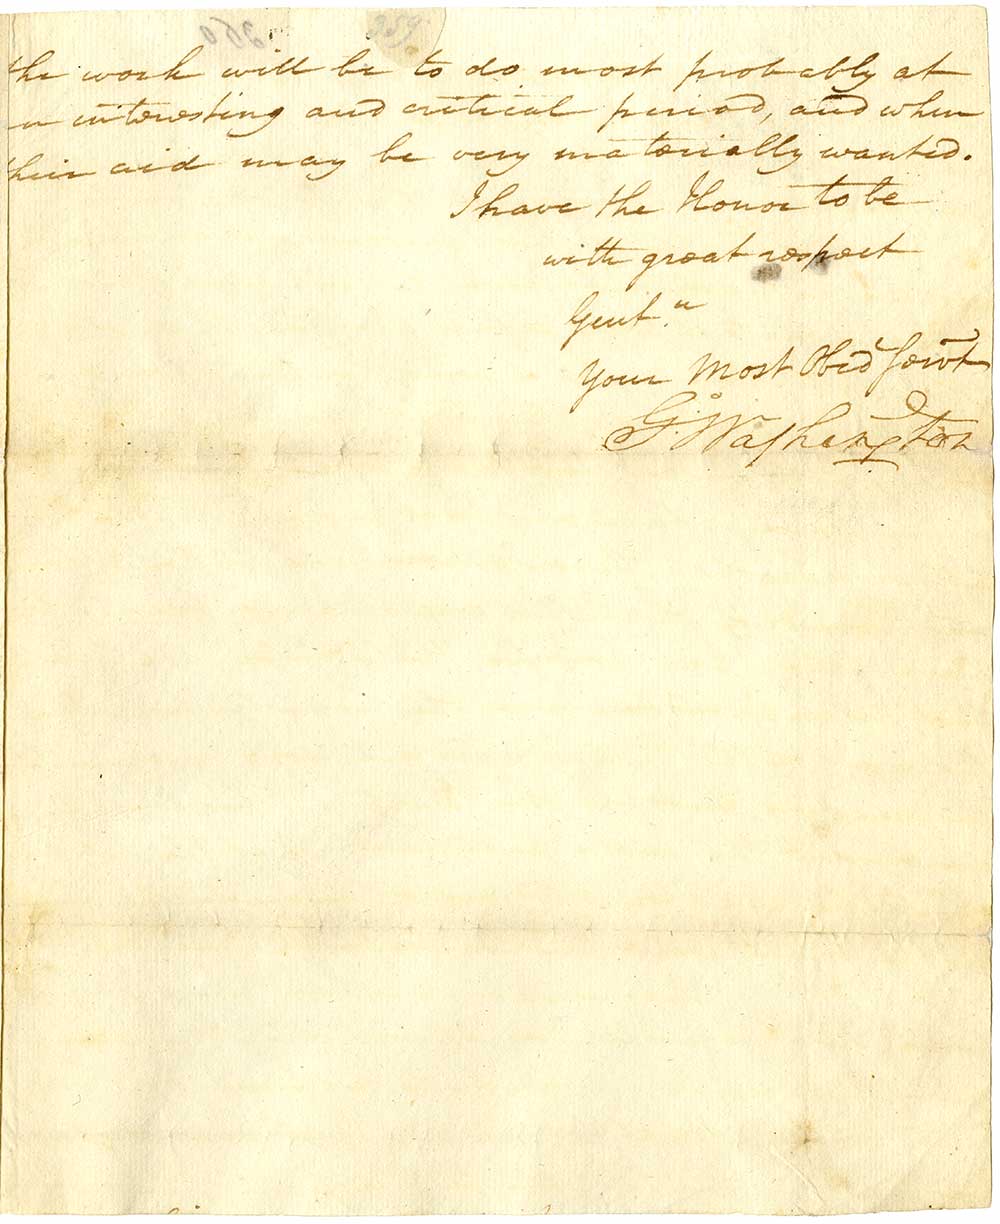 259
the work will be to do most probably at
an interesting and critical period, and when
their aid may be very materially wanted.
I have the Honor to be
with great respect
Gent.ⁿ
Your Most Obed Servt
G:Washington